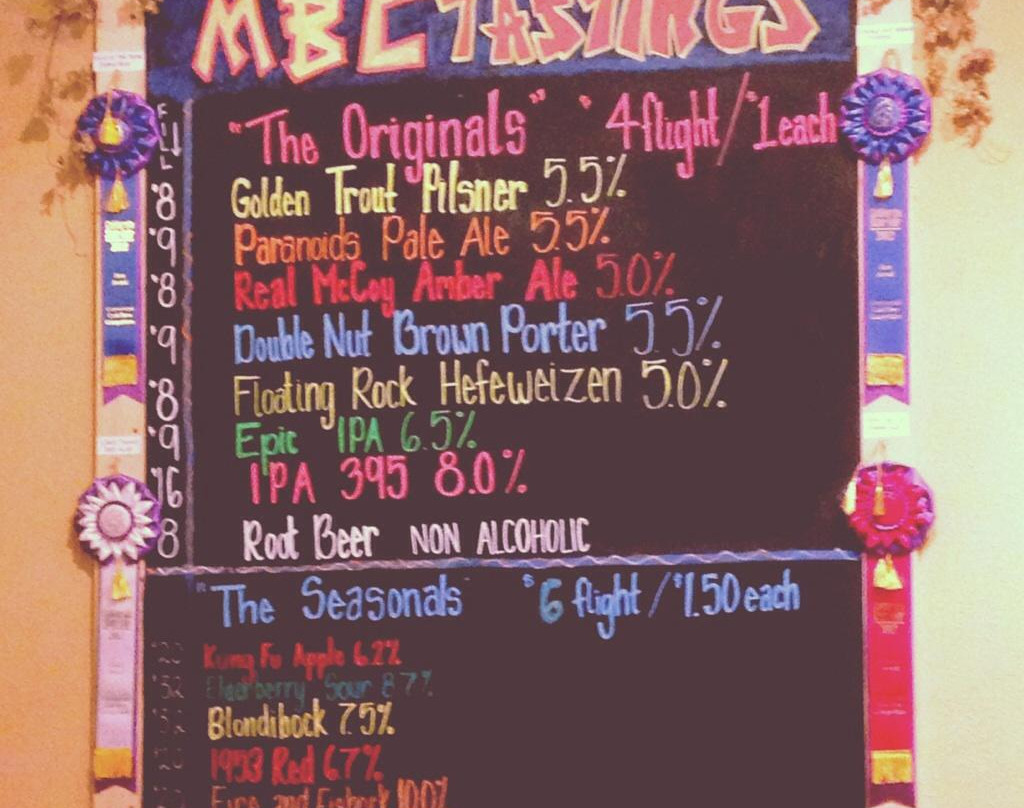 MBC TASTINGS
FILL
"The Originals" $4 flight/$1 each
$8 Golden Trout Pilsner 5.5%
$9 Paranoids Pale Ale 5.5%
$8 Real McCoy Amber Ale 5.0%
$9 Double Nut Brown Porter 5.5%
$8 Floating Rock Hefeweizen 5.0%
$9 Epic IPA 6.5%
$16 IPA 395 8.0%
8 Root Beer NON ALCOHOLIC
"The Seasonals" $6 flight/$1.50 each
Kung Fu Apple 6.2%
Elderberry Sour 8.7%
Blondibock 7.5%
1953 Red 6.7%
Fire and Eisbock 10.0%